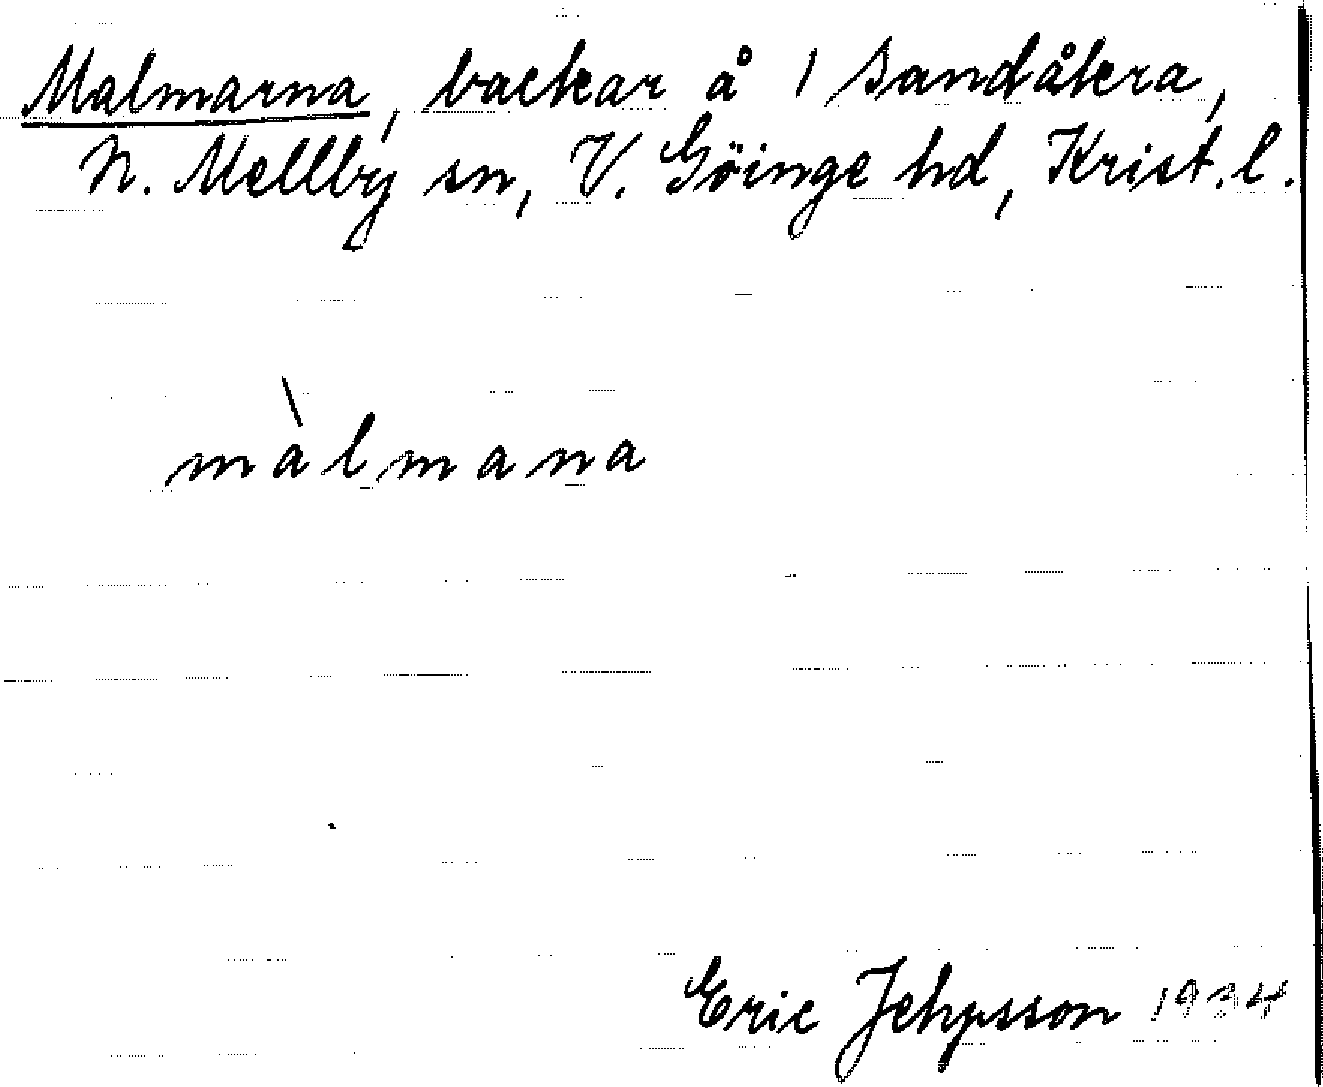 Malmarna, backar å 1 Sandåkra,
N. Mellby sn, V. Göinge hd, Krist. l.
màlmana
Eric Jehpsson 1934